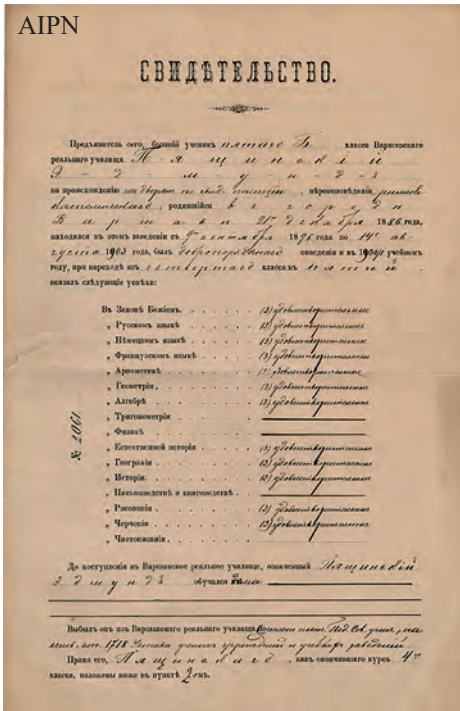 AIPN
СВИДѢТЕЛЬСТВО.
Предъявитель сего, бывшій ученикъ пятаго Б класса Варшавскаго
реальнаго училища П-ящинскій
Э-д-м-у-н-д-ъ
по происхожденію изъ дворянъ , вѣроисповѣданія римско
католическаго , родившійся въ городѣ
Варшавѣ 21го декабря 1886 года,
находился въ этомъ заведеніи съ сентября 1896 года по 14е ав-
густа 1903 года, былъ поведенія и въ учебномъ
году, при переходѣ изъ четвертаго класса въ пятый
оказалъ слѣдующіе успѣхи:
Въ Законѣ Божіемъ (3) удовлетворительные
„ Русскомъ языкѣ (3) удовлетворительные
„ Нѣмецкомъ языкѣ (3) удовлетворительные
„ Французскомъ языкѣ (3) удовлетворительные
„ Ариөметикѣ удовлетворительные
„ Геометріи (3) удовлетворительные
„ Алгебрѣ (3) удовлетворительные
„ Тригонометріи
„ Физикѣ
„ Естественной исторіи (3) удовлетворительные
„ Географіи (3) удовлетворительные
„ Исторіи (3) удовлетворительные
„ Письмоводствѣ и книговодствѣ
„ Рисованіи (3) удовлетворительные
„ Черченіи (3) удовлетворительные
„ Чистописаніи
№ 2061
До поступленія въ Варшавское реальное училище, означенный Пящинскій
Эдмундъ обучался дома
Выбылъ онъ изъ Варшавскаго реальнаго училища Пед. Сов. учил., на
1718 Устава ученыхъ учрежденій и учебныхъ заведеній.
Права его, Пящинскаго , какъ окончившаго курсъ 4го
класса, изложены ниже въ пунктѣ 2омъ.